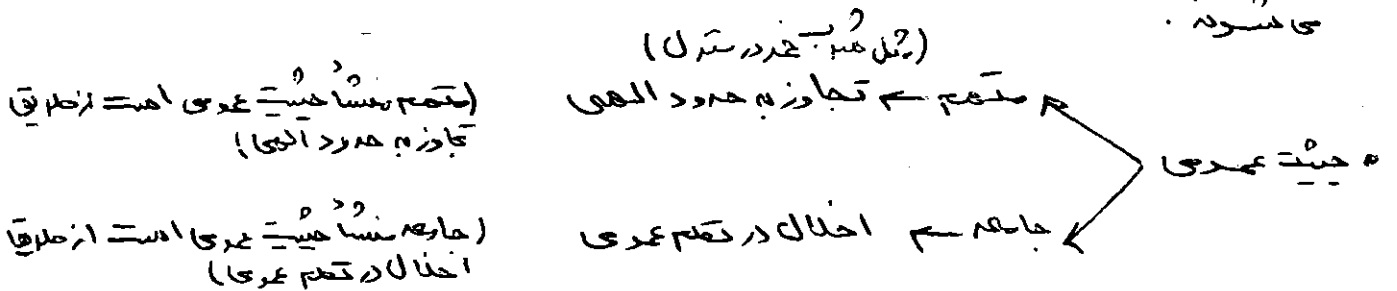 می‌شوند.
(مثل شرب خمر در منزل)
متهم ← تجاوز به حدود الهی (متهم منشأ حیثیت عمومی است از طریق
تجاوز به حدود الهی)
• حیثیت عمومی
جامعه ← اخلال در نظم عمومی (جامعه منشأ حیثیت عمومی است از طریق
اخلال در نظم عمومی)